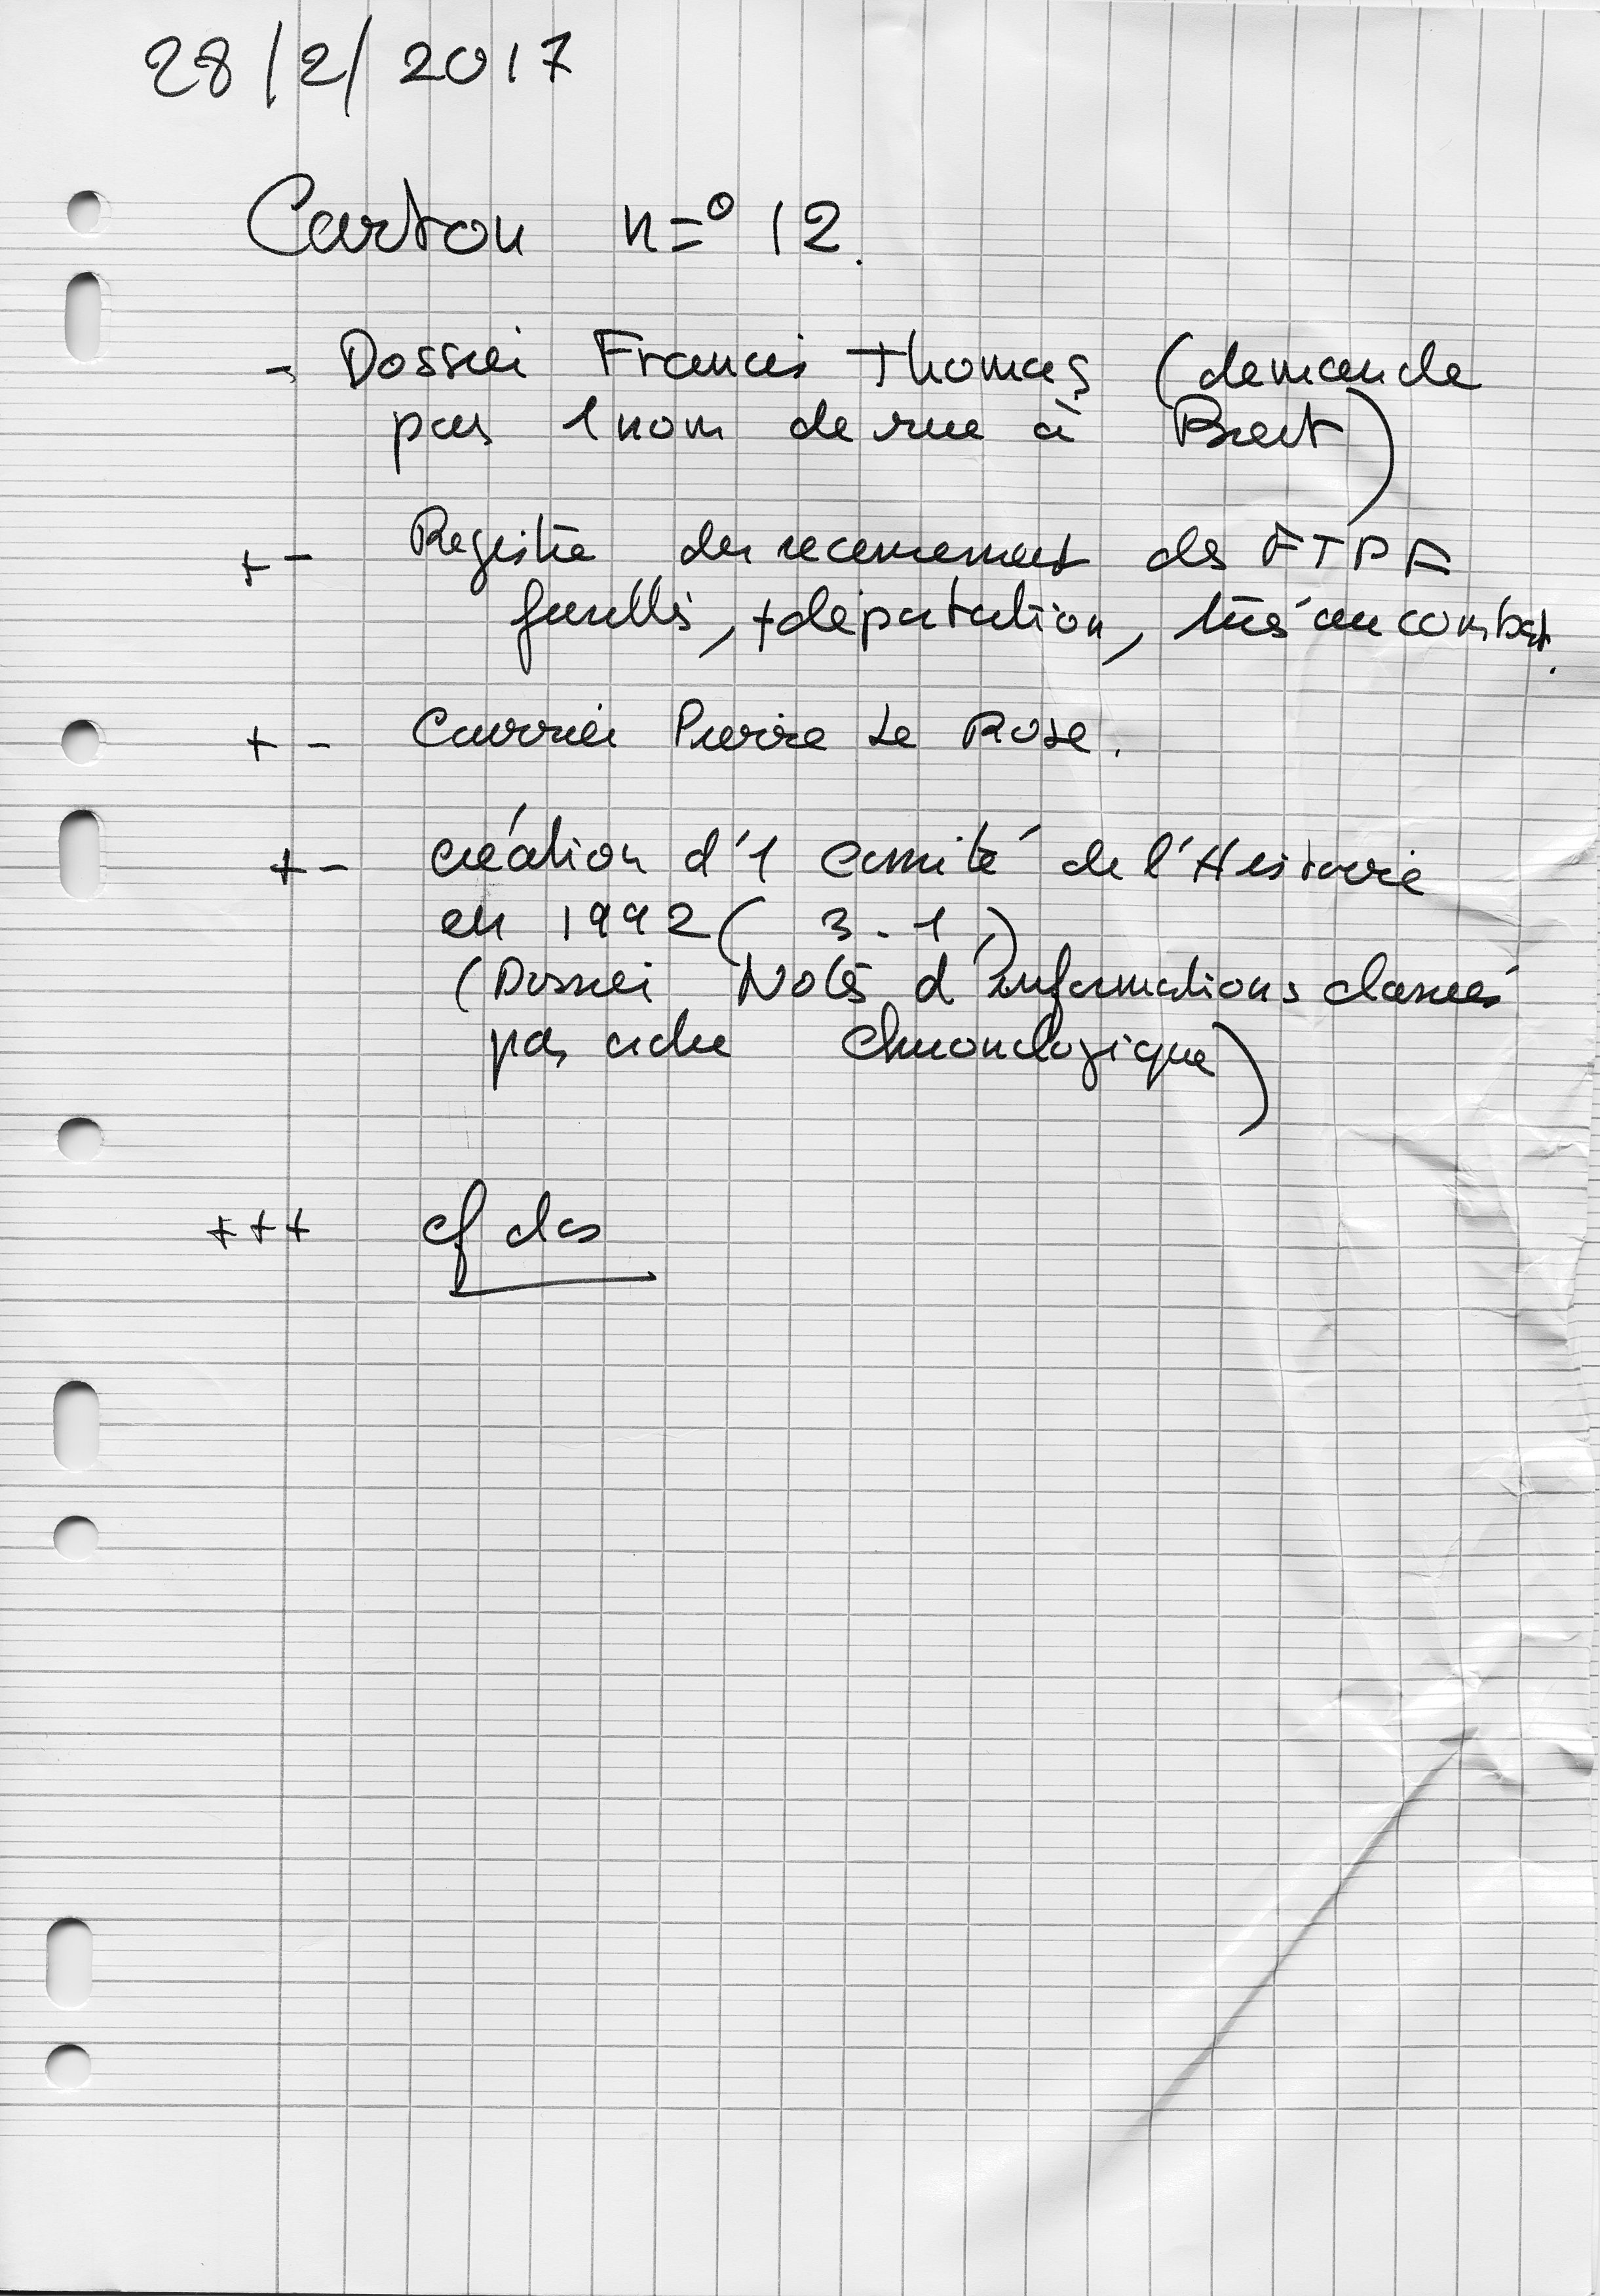 28/2/2017
Carton n° 12.
- Dossier Francis Thomas (demande
pour 1 nom de rue à Brest)
+ - Registre du recensement des FTPF
fusillés, + déportation, tués au combat.
+ - Courrier Pierre Le Rose.
+ - création d'1 Comité de l'Histoire
en 1992 ( 3 - 1 )
(Dossier Notes d'informations classées
par ordre chronologique)
+++ cf des